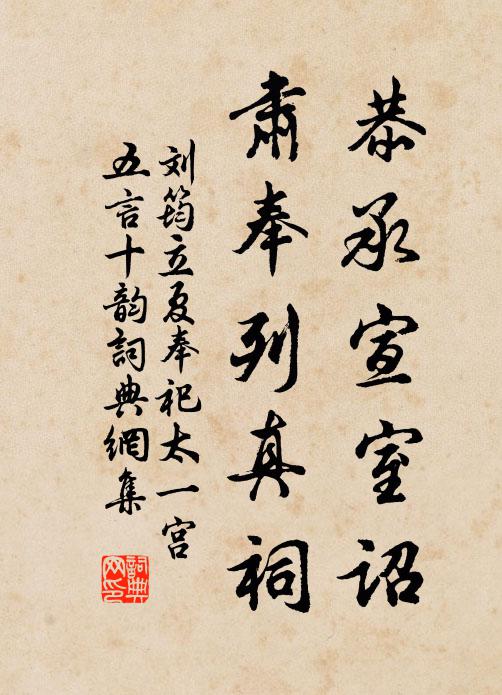 恭承宣室诏
肃奉列真祠
刘筠立夏奉祀太一宫
五言十韵词典網集
詞典网印